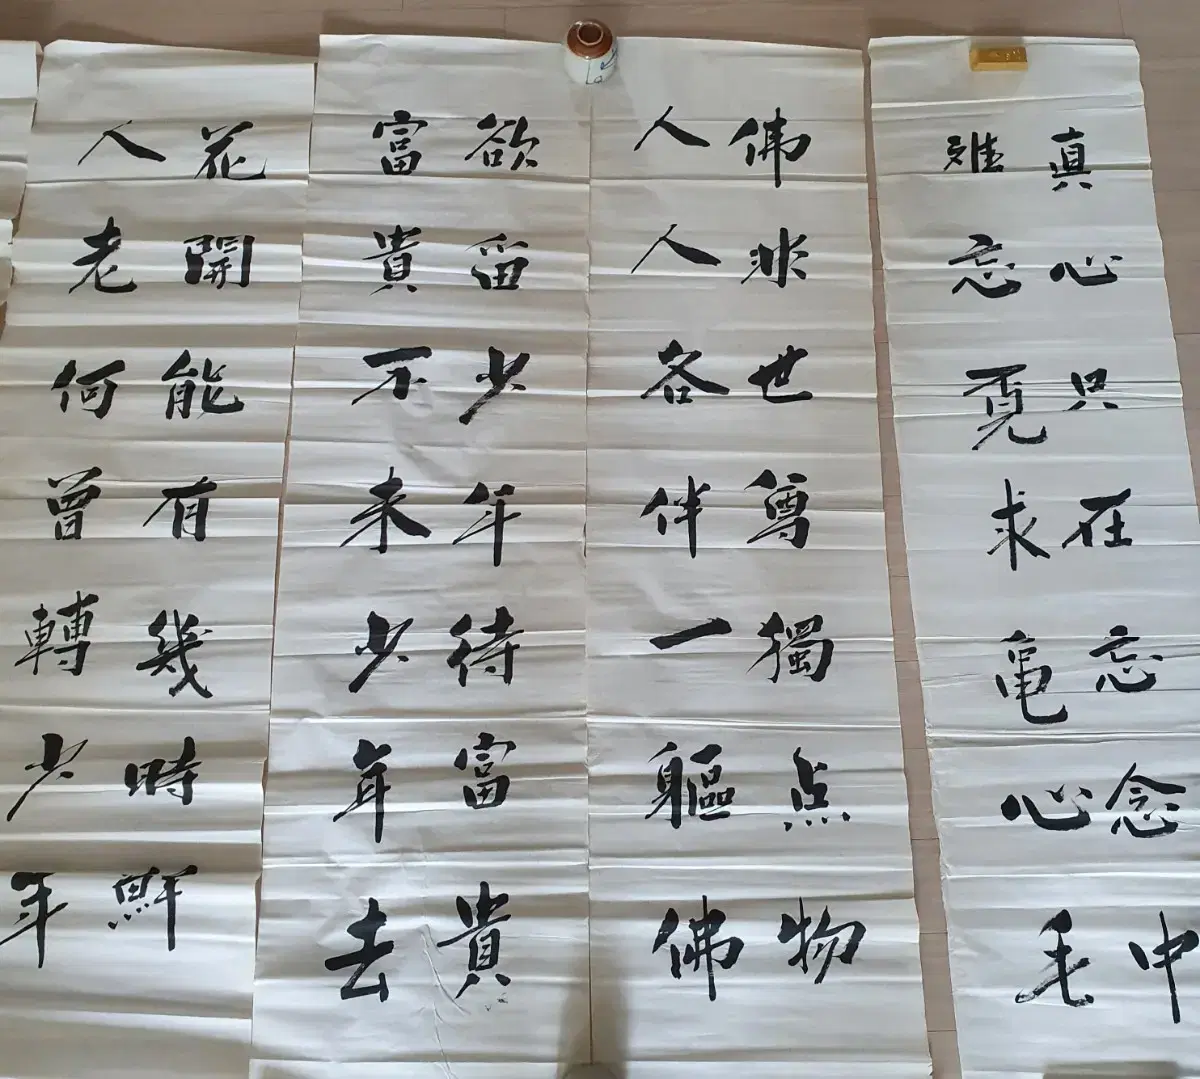 真心只在忘念中
难忘覔求亀心毛
佛非世尊獨点物
人人各伴一軀佛
欲留少年待富貴
富貴不来少年去
花開能有幾時鮮
人老何曾轉少年